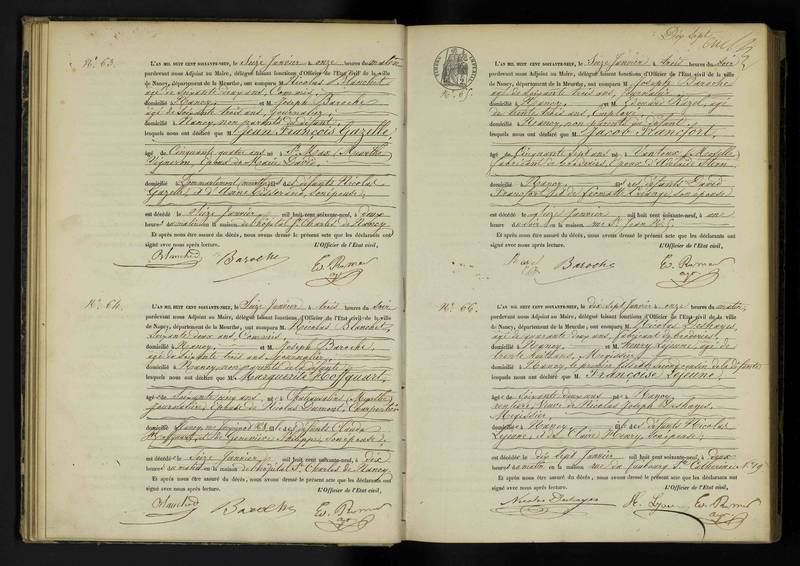 N° 63.
L'AN MIL HUIT CENT SOIXANTE-NEUF, le Seize Janvier à onze heures du matin
pardevant nous Adjoint au Maire, délégué faisant fonctions d'Officier de l'Etat civil de la ville
de Nancy, département de la Meurthe, ont comparu M. Nicolas Blanchet
âgé de Soixante deux ans, Commis,
domicilié à Nancy, et M. Joseph Baroche
âgé de Soixante trois ans, Journalier,
domicilié à Nancy non parents du défunt
lesquels nous ont déclaré que M. Jean François Gazelle,
âgé de Cinquante quatre ans né à St Max (Meurthe)
Vigneron, Epoux de Marie David
domicilié à Dommartemont (Meurthe) fils des défunts Nicolas
Gazelle, & d'Anne
est décédé le Seize Janvier mil huit cent soixante-neuf, à deux
heures du matin en la maison de l'hôpital St Charles de Nancy
Et après nous être assuré du décès, nous avons dressé le présent acte que les déclarants ont
signé avec nous après lecture. L'Officier de l'Etat civil,
Blanchet Baroche
N° 64.
L'AN MIL HUIT CENT SOIXANTE-NEUF, le Seize Janvier à trois heures du soir
pardevant nous Adjoint au Maire, délégué faisant fonctions d'Officier de l'Etat civil de la ville
de Nancy, département de la Meurthe, ont comparu M. Nicolas Blanchet,
Soixante deux ans Commis,
domicilié à Nancy, et M. Joseph Baroche,
âgé de Soixante trois ans Journalier,
domicilié à Nancy non parents de la défunte
lesquels nous ont déclaré que M. Marguerite Hoffquart,
âgée de Soixante cinq ans née à Château-Salins (Meurthe)
journalière, Epouse de Nicolas Dumont, Charpentier
domiciliée à Nancy fille des défunts Claude
Hoffquart, et de Geneviève Philippe, son épouse,
est décédée le Seize Janvier mil huit cent soixante-neuf, à dix
heures du matin en la maison de l'hôpital St Charles de Nancy
Et après nous être assuré du décès, nous avons dressé le présent acte que les déclarants ont
signé avec nous après lecture. L'Officier de l'Etat civil,
Blanchet Baroche
Dix Sept
N° 65.
L'AN MIL HUIT CENT SOIXANTE-NEUF, le Seize Janvier à trois heures du soir
pardevant nous Adjoint au Maire, délégué faisant fonctions d'Officier de l'Etat civil de la ville
de Nancy, département de la Meurthe, ont comparu M. Joseph Baroche
âgé de Soixante trois ans, Journalier,
domicilié à Nancy, et M. Edouard, âgé
de trente trois ans, Employé,
domicilié à Nancy non parents du défunt
lesquels nous ont déclaré que M. Jacob Francfort,
âgé de Cinquante Sept ans né à Vantoux (Moselle)
fabricant de broderies, Epoux d'Adélaïde
domicilié à Nancy fils des défunts David
Francfort, et de son épouse
est décédé le Seize Janvier mil huit cent soixante-neuf, à une
heure du soir en la maison rue St Jean
Et après nous être assuré du décès, nous avons dressé le présent acte que les déclarants ont
signé avec nous après lecture. L'Officier de l'Etat civil,
Baroche
N° 66.
L'AN MIL HUIT CENT SOIXANTE-NEUF, le dix sept Janvier onze heures du matin,
pardevant nous Adjoint au Maire, délégué faisant fonctions d'Officier de l'Etat civil de la ville
de Nancy, département de la Meurthe, ont comparu M. Nicolas Deshayes,
âgé de quarante deux ans, fabricant de broderies,
domicilié à Nancy, et M. Henry Lejeune, âgé de
trente huit ans, Mégissier,
domicilié à Nancy, le premier fils & le second cousin de la défunte
lesquels nous ont déclaré que M. Françoise Lejeune,
âgée de Soixante deux ans née à Nancy
Veuve de Nicolas Joseph Deshayes,
Mégissier
domiciliée à Nancy fille des défunts Nicolas
Lejeune, et de Claire Henry, son épouse,
est décédée le dix sept Janvier mil huit cent soixante-neuf, à deux
heures du matin en la maison rue du faubourg Ste Catherine N° 19
Et après nous être assuré du décès, nous avons dressé le présent acte que les déclarants ont
signé avec nous après lecture. L'Officier de l'Etat civil,
Nicolas Deshayes